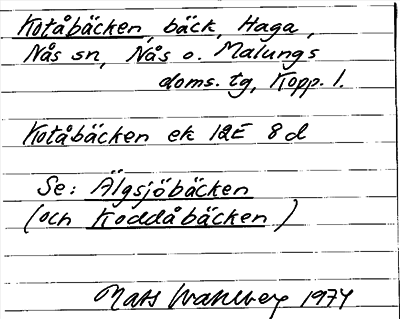 Kotåbäcken, bäck, Haga,
Nås sn, Nås o. Malungs
doms. tg, Kopp. l.
Kotåbäcken ek 12E 8d
Se: Älgsjöbäcken
(och Koddåbäcken)
Mats Wahlberg 1974